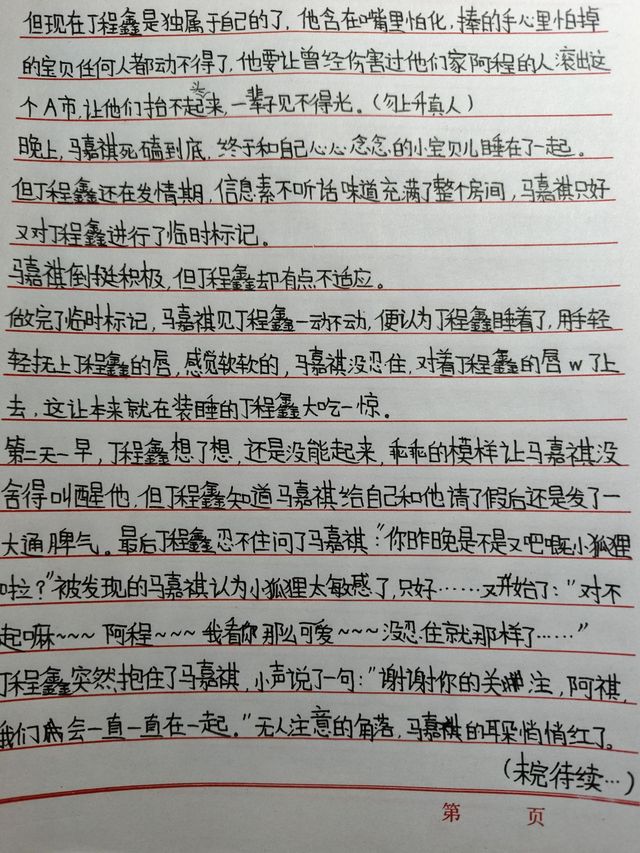 但现在丁程鑫是独属于自己的了，他含在嘴里怕化，捧的手心里怕掉
的宝贝任何人都动不得了，他要让曾经伤害过他们家阿程的人滚出这
个A市，让他们抬不起来，一辈子见不得光。（勿上升真人）
头
晚上，马嘉祺死磕到底，终于和自己心心念念的小宝贝儿睡在了一起。
但丁程鑫还在发情期，信息素不听话味道充满了整个房间，马嘉祺只好
又对丁程鑫进行了临时标记。
马嘉祺倒挺积极，但丁程鑫却有点不适应。
做完了临时标记，马嘉祺见丁程鑫一动不动，便认为丁程鑫睡着了，用手轻
轻抚上丁程鑫的唇，感觉软软的，马嘉祺没忍住，对着丁程鑫的唇w了上
去，这让本来就在装睡的丁程鑫大吃一惊。
第二天一早，丁程鑫想了想，还是没能起来，乖乖的模样让马嘉祺没
舍得叫醒他，但丁程鑫知道马嘉祺给自己和他请了假后还是发了一
大通脾气。最后丁程鑫忍不住问了马嘉祺：“你昨晚是不是又吧嘅小狐狸
啦？”被发现的马嘉祺认为小狐狸太敏感了，只好……又开始了：“对不
起嘛~~~阿程~~~我看你那么可爱~~~没忍住就那样了……”
丁程鑫突然抱住了马嘉祺，小声说了一句：“谢谢你的关注，阿祺，
我们会一直一直在一起。”无人注意的角落，马嘉祺的耳朵悄悄红了。
（未完待续…）
第 页